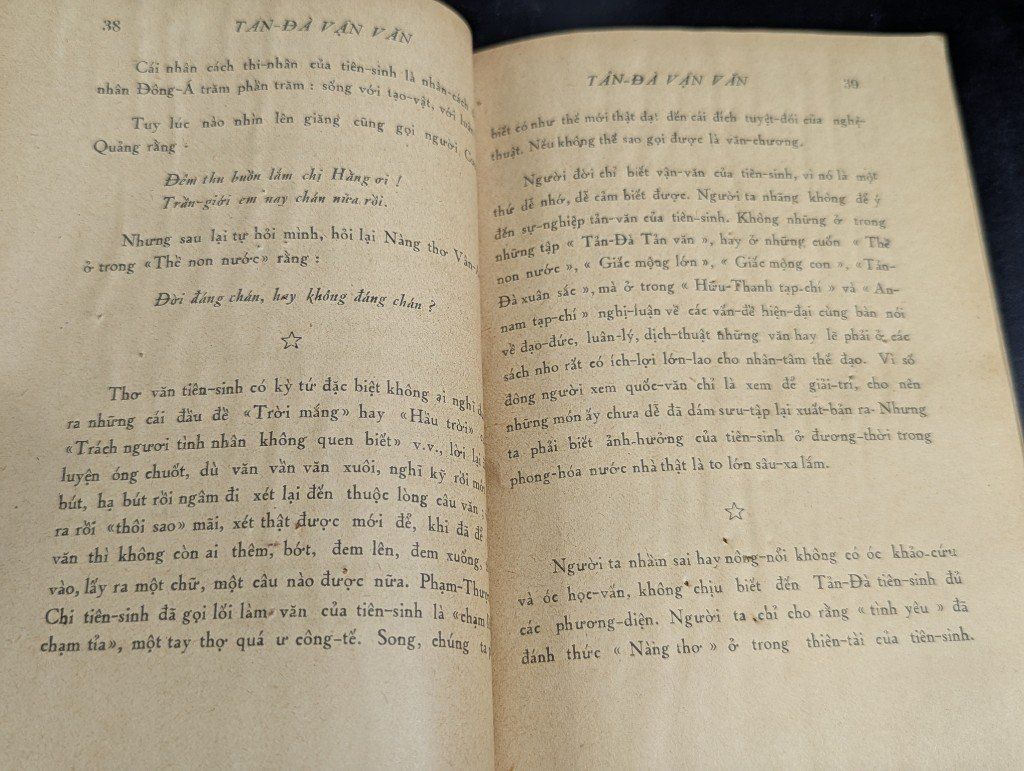 38 TẢN-ĐÀ VẬN VĂN
Cái nhân cách thi-nhân của tiên-sinh là nhân-cách
nhân Đông-Á trăm phần trăm : sống với tạo-vật, với
Tuy lúc nào nhìn lên giăng cũng gọi người
Quảng rằng :
Đêm thu buồn lắm chị Hằng ơi !
Trần-giới em nay chán nữa rồi.
Nhưng sau lại tự hỏi mình, hỏi lại Nàng thơ
ở trong «Thề non nước» rằng :
Đời đáng chán, hay không đáng chán ?
Thơ văn tiên-sinh có kỳ tứ đặc biệt không ai nghĩ
ra những cái đầu đề «Trời mắng» hay «Hầu trời»
«Trách người tình nhân không quen biết» v.v., lời lại
luyện óng chuốt, dù văn vần văn xuôi, nghĩ kỹ rồi mới
bút, hạ bút rồi ngâm đi xét lại đến thuộc lòng câu văn
ra rồi «thôi sao» mãi, xét thật được mới để, khi đã để
văn thì không còn ai thêm, bớt, đem lên, đem xuống,
vào, lấy ra một chữ, một câu nào được nữa. Phạm-Thượng
Chi tiên-sinh đã gọi lối làm văn của tiên-sinh là «chạm
chạm tỉa», một tay thợ quá ư công-tế. Song, chúng ta
TẢN-ĐÀ VẬN VĂN 39
biết có như thế mới thật đạt đến cái đích tuyệt-đối của nghệ-
thuật. Nếu không thế sao gọi được là văn-chương.
Người đời chỉ biết vận-văn của tiên-sinh, vì nó là một
thứ dễ nhớ, dễ cảm biết được. Người ta nhãng không để ý
đến sự-nghiệp tản-văn của tiên-sinh. Không những ở trong
những tập « Tản-Đà Tản văn », hay ở những cuốn « Thề
non nước », « Giấc mộng lớn », « Giấc mộng con », «Tản-
Đà xuân sắc », mà ở trong « Hữu-Thanh tạp-chí » và « An-
nam tạp-chí » nghị-luận về các vấn-đề hiện-đại cùng bàn nói
về đạo-đức, luân-lý, dịch-thuật những văn hay lẽ phải ở các
sách nho rất có ích-lợi lớn-lao cho nhân-tâm thế đạo. Vì số
đông người xem quốc-văn chỉ là xem để giải-trí, cho nên
những món ấy chưa dễ đã dám sưu-tập lại xuất-bản ra- Nhưng
ta phải biết ảnh-hưởng của tiên-sinh ở đương-thời trong
phong-hóa nước nhà thật là to lớn sâu-xa lắm.
Người ta nhầm sai hay nông-nổi không có óc khảo-cứu
và óc học-vấn, không chịu biết đến Tản-Đà tiên-sinh đủ
các phương-diện. Người ta chỉ cho rằng « tình yêu » đã
đánh thức « Nàng thơ » ở trong thiên-tài của tiên-sinh.